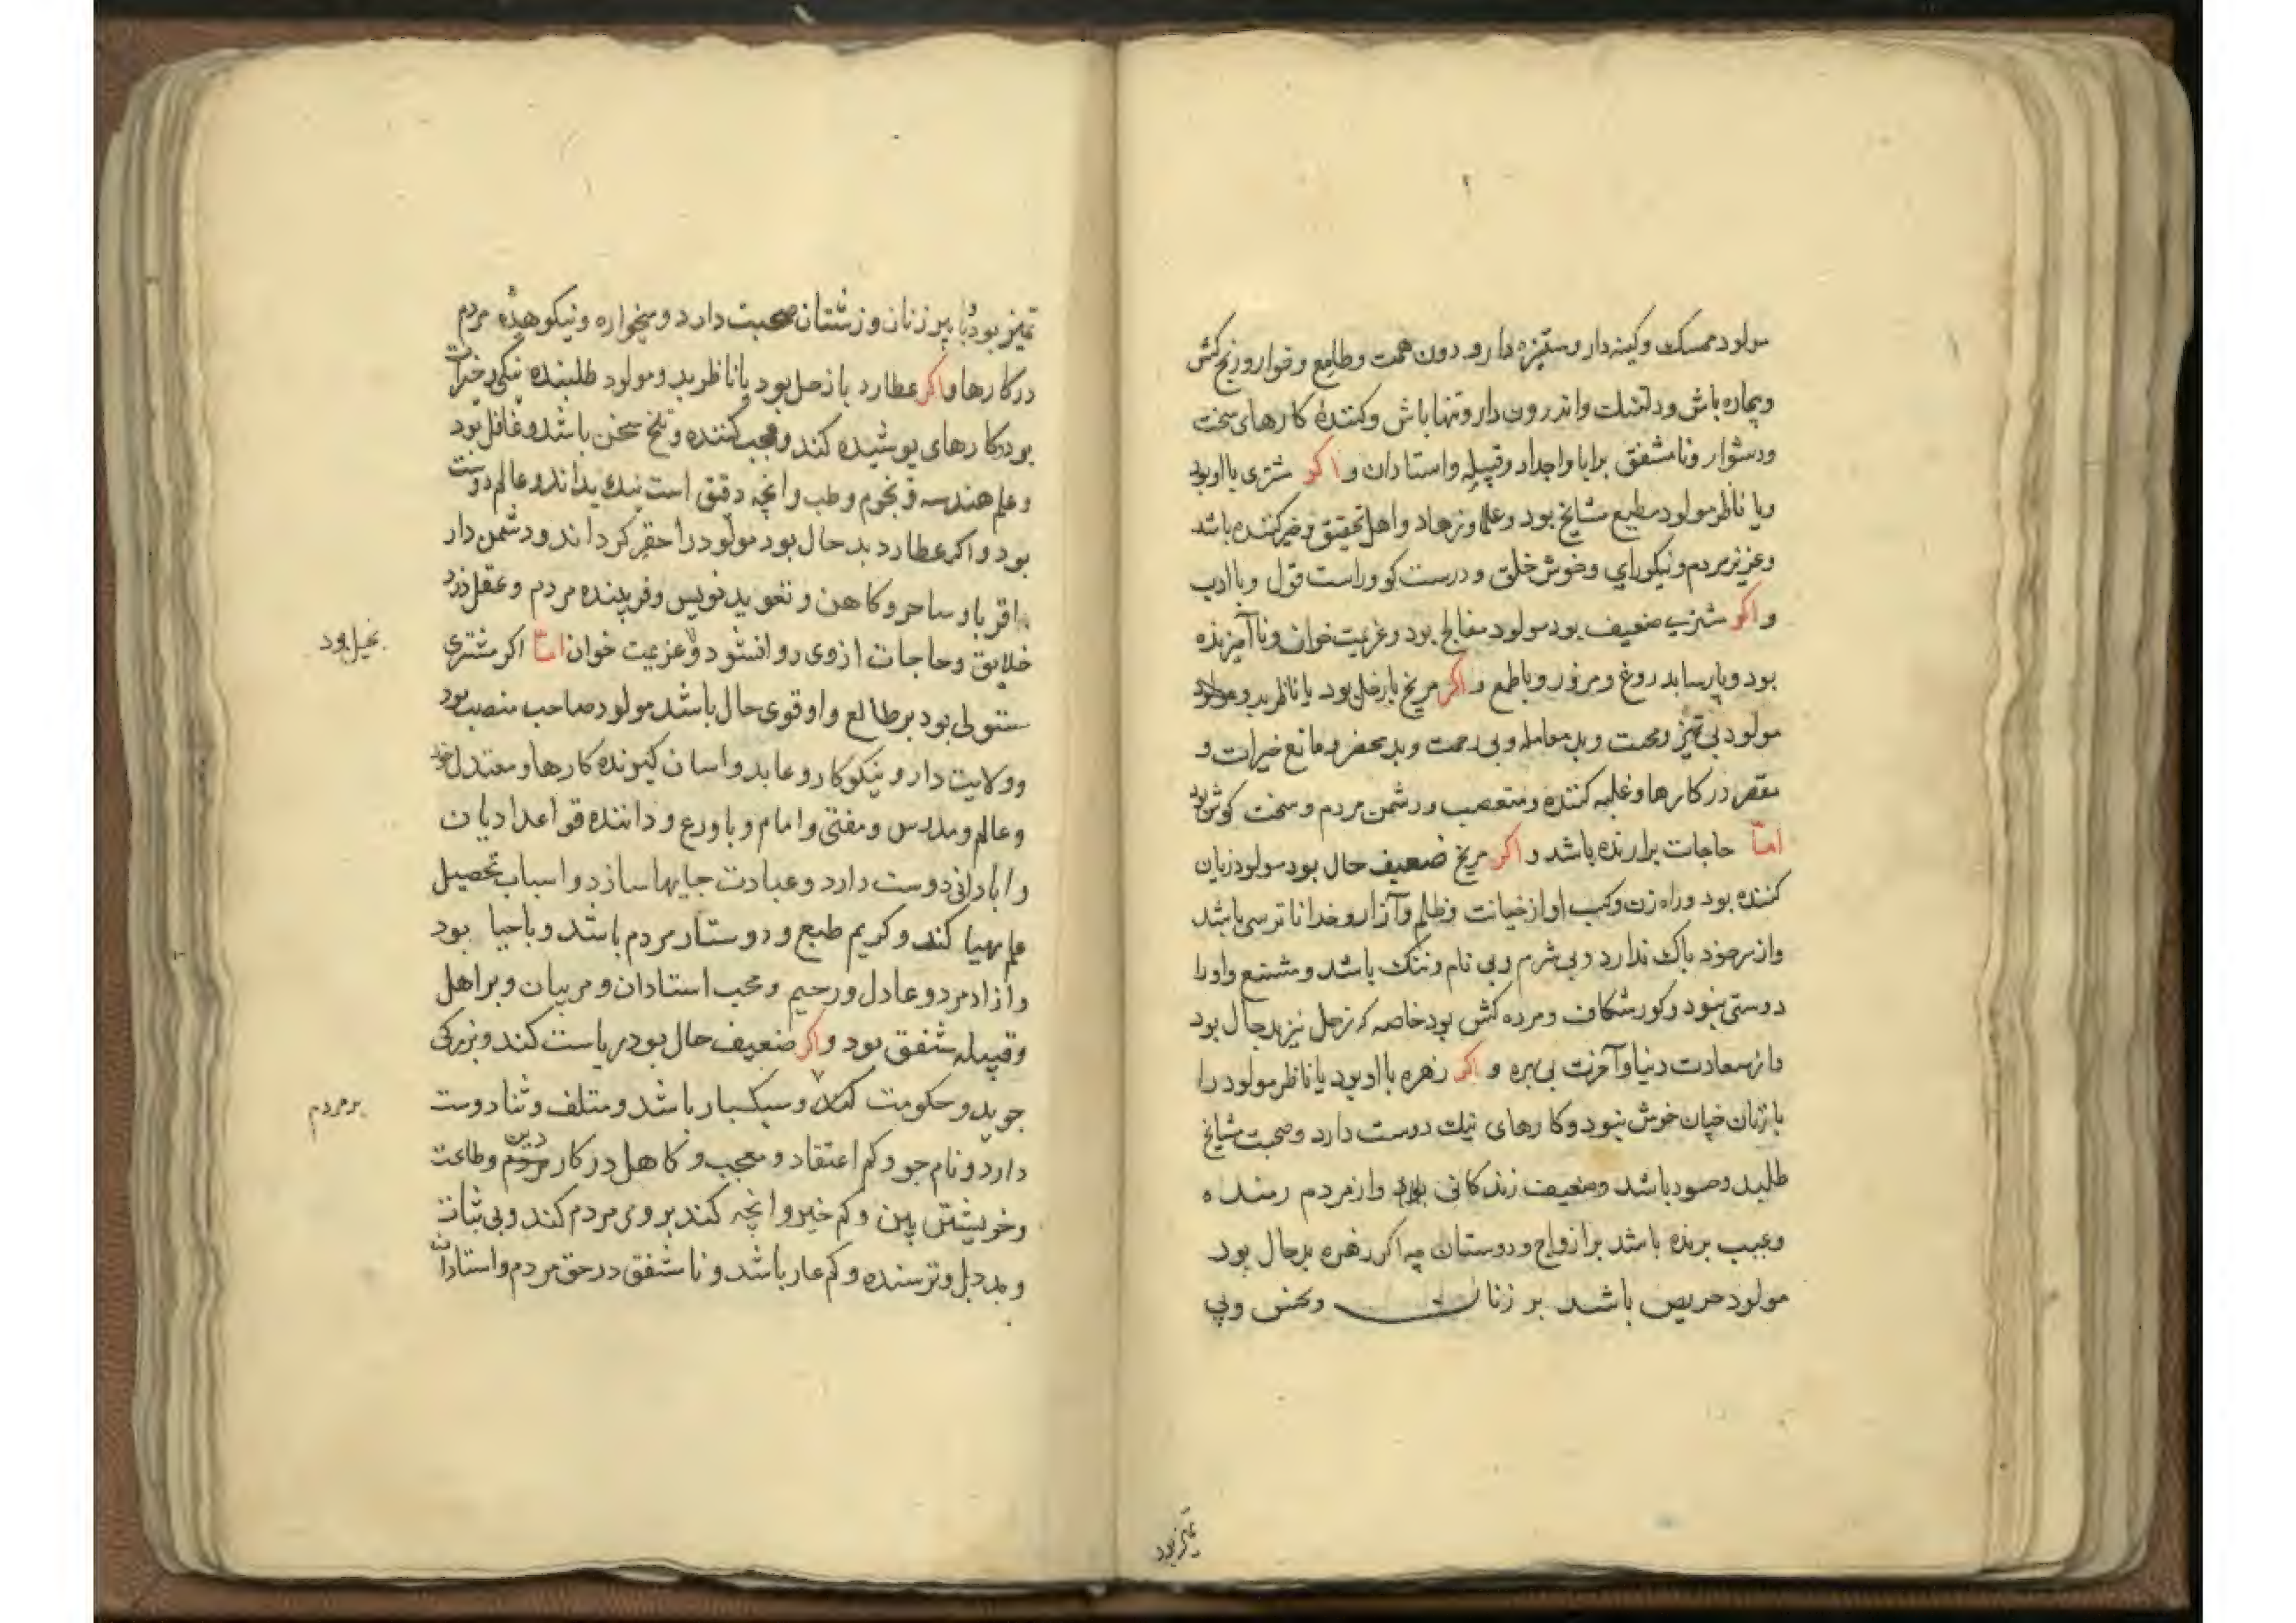 مولود ممسک وکینه دار وستیزه دارو دون همت وطامع وخوار ورنج کش
وبیماره باش ودلتنک واندرون دار وتنها باش وکننده کارهای سخت
ودشوار ونامشفق برابا واجداد وقبیله واستادان واکر مشتری بااوبود
ویا ناظر مولود مطیع مشایخ بود وعلما وزهاد واهل تحقیق وخیرکننده باشد
وعزیز مردم ونیکورای وخوش خلق ودرست کو وراست قول وباادب
واکر مشتری ضعیف بود مولود معالج بود وعزیمت خوان وناآمیزنده
بود وپارسا بدروغ ومزور وباطمع واکر مریخ بازحل بود یا ناظر بدو
مولود بی تمیز ومحنت وبد معامله وبی رحمت وبد محضر ومانع خیرات و
مقصر در کارها وغلبه کننده ومتعصب ودشمن مردم وسخت کوش بود
امّا حاجات برارنده باشد واکر مریخ ضعیف حال بود مولود زیان
کننده بود وراه زن وکسب اواز خیانت وظلم وآزار وخدا ناترسی باشد
وازسرخود باک ندارد وبی شرم وبی نام وننک باشد ومشنع واورا
دوستی نبود وکورشکاف ومرده کش بود خاصه که زحل نیز بدحال بود
واز سعادت دنیا وآخرت بی بهره واکر زهره بااوبود یا ناظر مولود را
بازنان خپان خوش نبود وکارهای نیک دوست دارد وصحبت مشایخ
طلبد وصبور باشد وضعیف زندکانی بود وازمردم رمنده
وعیب برنده باشد برازواج ودوستان چه اکر زهره بدحال بود
مولود حریص باشد بر زنان ونحس وبی
تمیز بود
تمیز بود وبا پیر زنان وزشتان صحبت دارد ومیخواره ونیکوهیده مردم
درکارها واکر عطارد بازحل بود یا ناظر بدو مولود طلبنده نیکی وخیرات
بود وکارهای پوشیده کند ومعجب کننده وتلخ سخن باشد وغافل بود
وعلم هندسه ونجوم وطب وانچه دقیق است نیک بداند وعالم دوست
بود واکر عطارد بدحال بود مولود را حقیر کرداند ودشمن دار
اقربا وساحر وکاهن وتعویذ نویس وفریبنده مردم وعقل دزد
خلایق وحاجات ازوی روانشود وعزیمت خوان امّا اکر مشتری
بخیل بود
مستولی بود برطالع واوقوی حال باشد مولود صاحب منصب بود
وولایت دار ونیکوکار وعابد واسان کیرنده کارها ومعتدل خو
وعالم ومدرس ومفتی وامام وباورع وداننده قواعد ادیان
وابادانی دوست دارد وعبادت جایها سازد واسباب تحصیل
علم مهیا کند وکریم طبع ودوستار مردم باشد وباحیا بود
وازادمرد وعادل ورحیم ومحب استادان ومربیان وبراهل
وقبیله مشفق بود واکر ضعیف حال بود ریاست کند وبزرکی
جوید وحکومت کند وسبکسار باشد ومتلف وثنا دوست
بر مردم
دارد ونام جو وکم اعتقاد ومعجب وکاهل درکار دین وطاعت
وخویشتن بین وکم خیر وانچه کند بروی مردم کند وبی ثبات
وبددل وترسنده وکم عار باشد ونامشفق درحق مردم واستادان